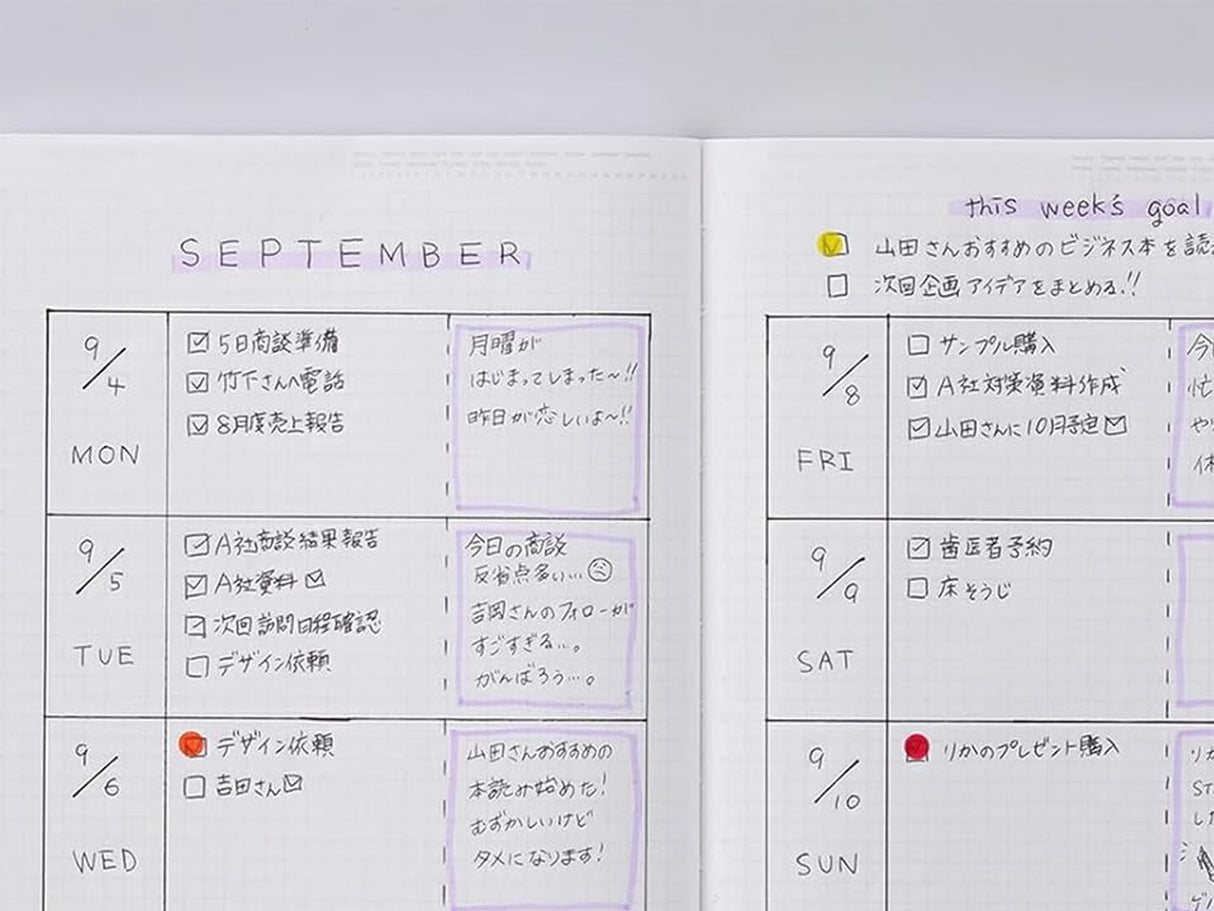 SEPTEMBER
9/4
MON
☑ 5日商談準備
☑ 竹下さんへ電話
☑ 8月度売上報告
月曜が
はじまってしまった〜!!
昨日が恋しいよ〜!!
9/5
TUE
☑ A社商談結果報告
☑ A社資料✉
☑ 次回訪問日程確認
☐ デザイン依頼
今日の商談
反省点多い…☹
吉岡さんのフォローが
すごすぎる…。
がんばろう…。
9/6
WED
☑ デザイン依頼
☐ 吉田さん✉
山田さんおすすめの
本読み始めた!
むずかしいけど
タメになります!
this week's goal
☑ 山田さんおすすめのビジネス本を読
☐ 次回企画アイデアをまとめる!!
9/8
FRI
☐ サンプル購入
☑ A社対策資料作成
☑ 山田さんに10月予定✉
今
忙
や
休
9/9
SAT
☑ 歯医者予約
☐ 床そうじ
9/10
SUN
☑ りかのプレゼント購入
りか
ST
した